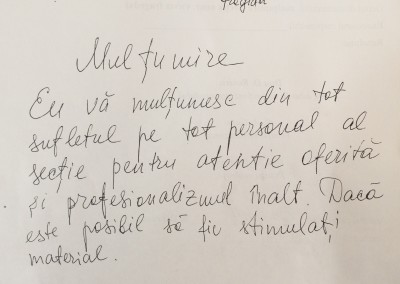 Mulțumire
Eu vă mulțumesc din tot
sufletul pe tot personal al
secție pentru atenție oferită
și profesionalizmul înalt. Dacă
este posibil să fiu stimulați
material.